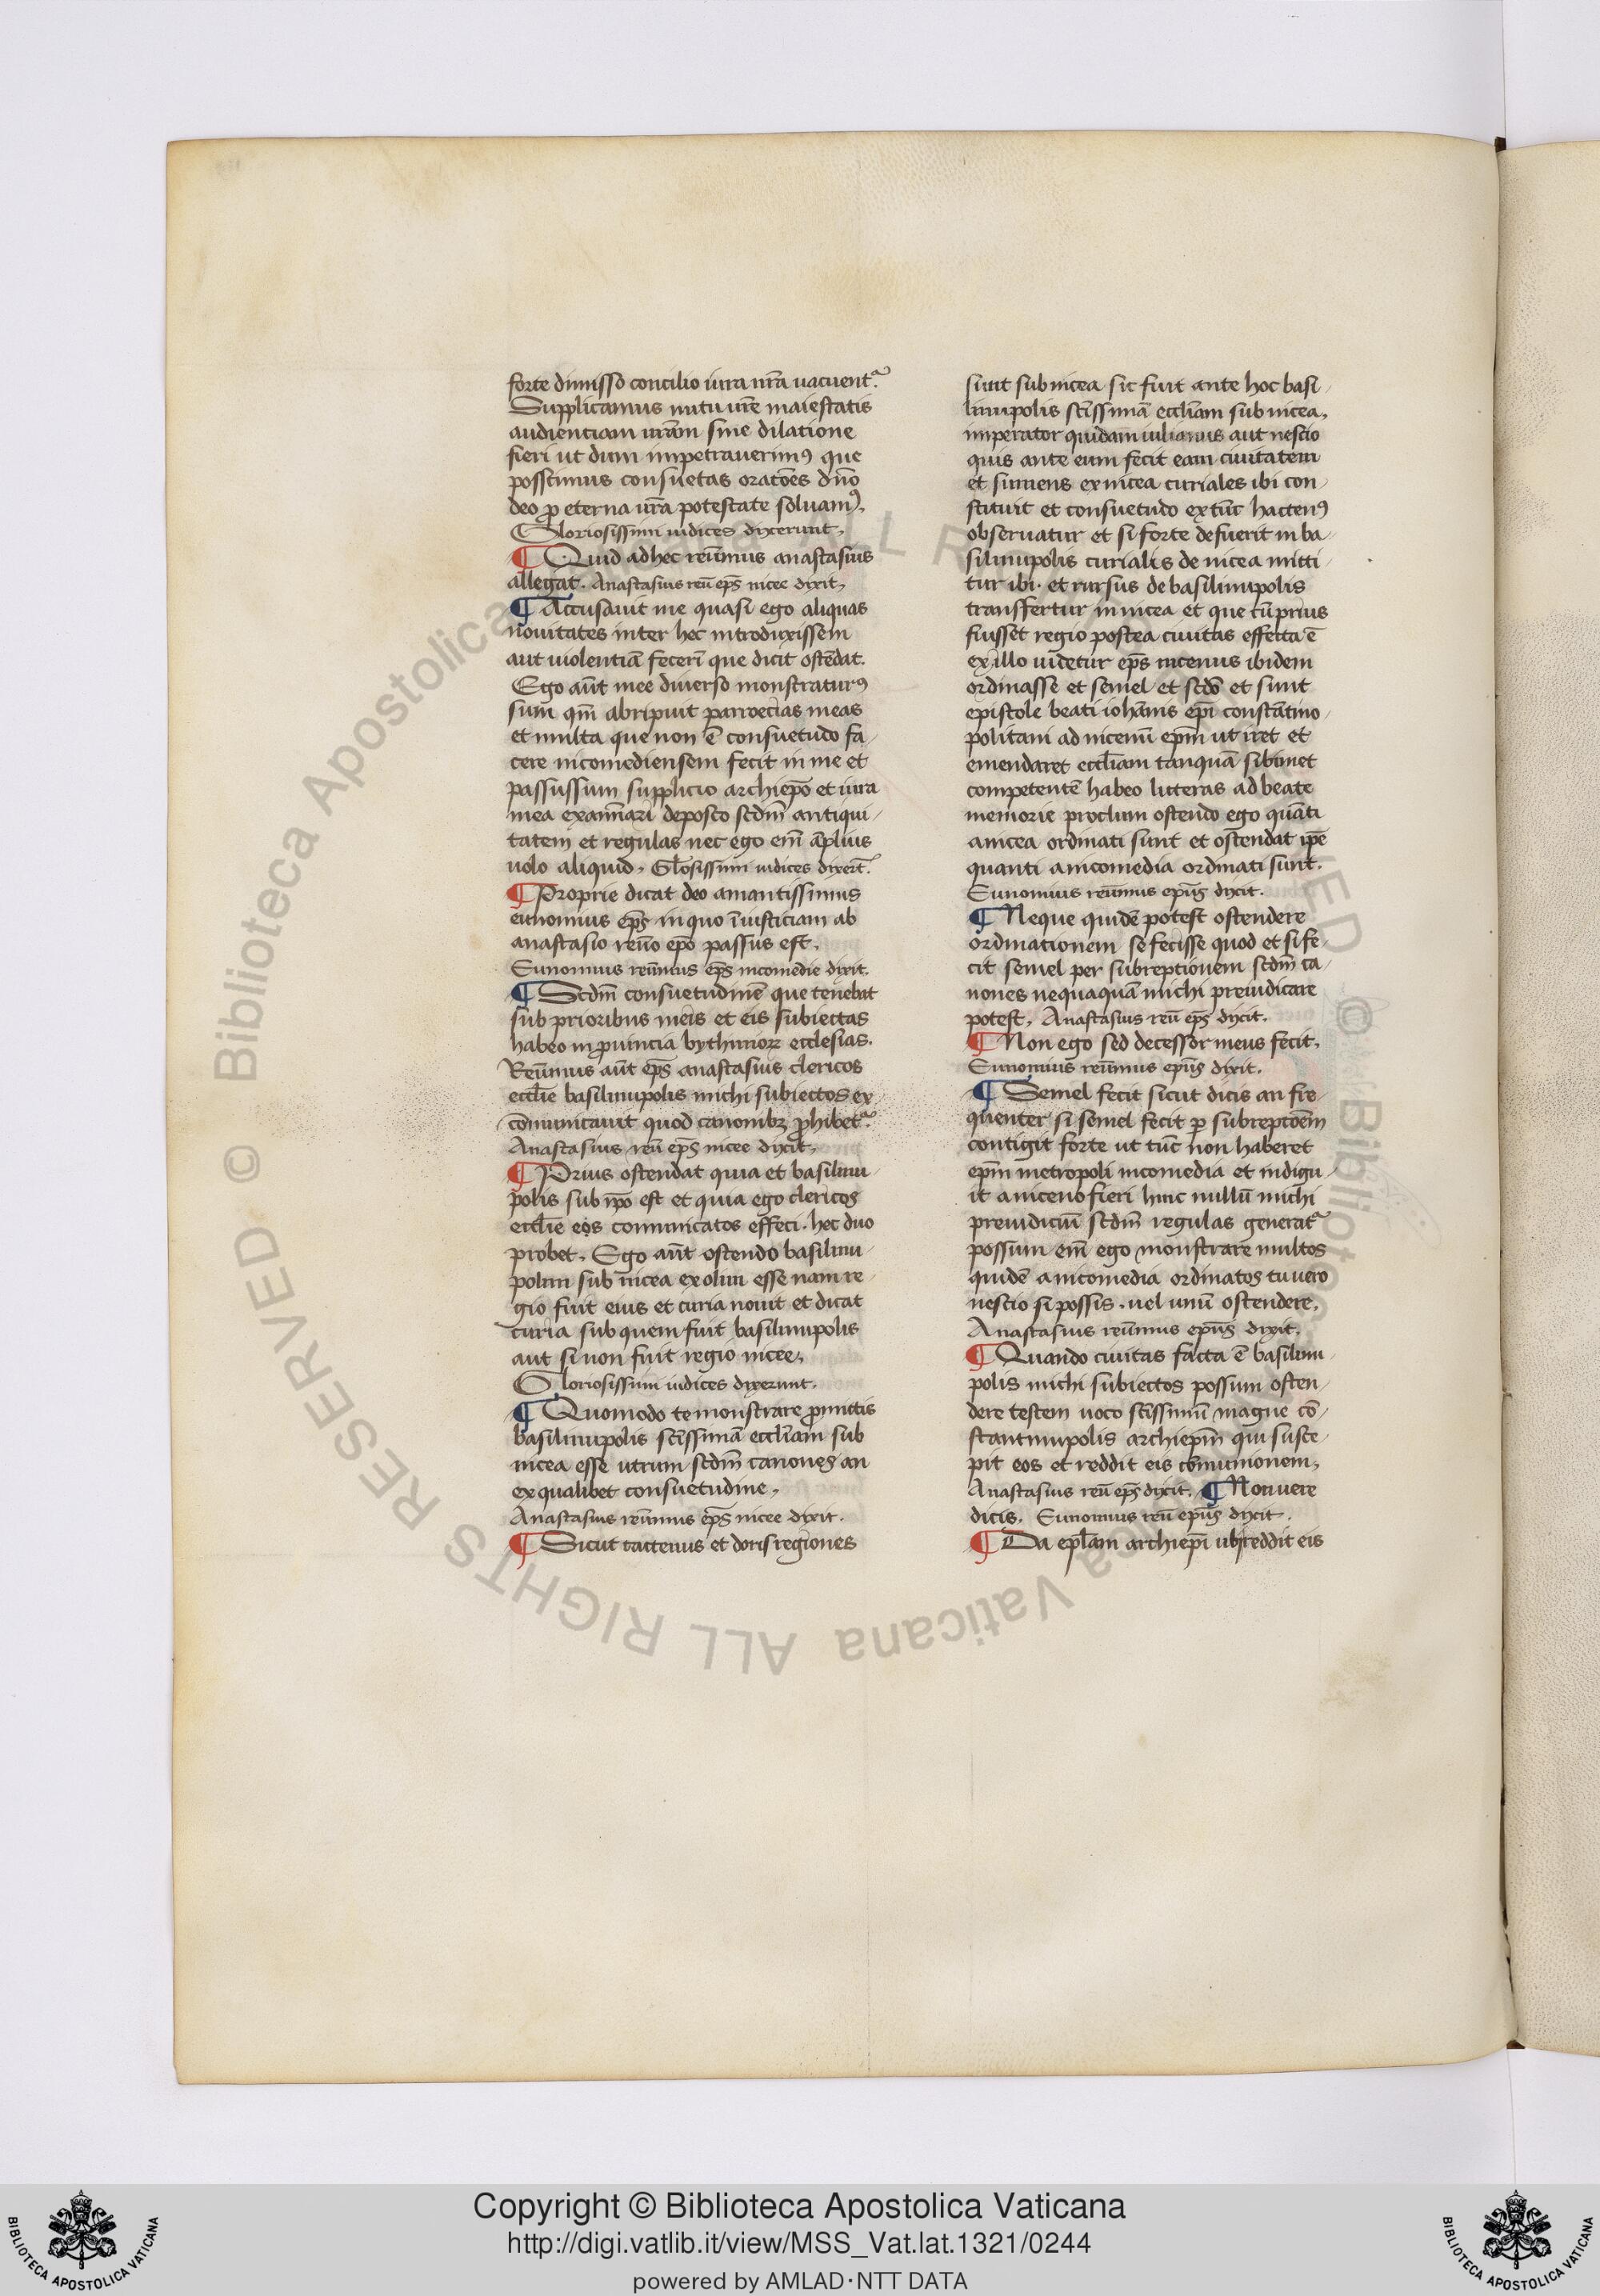 forte dimisso concilio iura nr̄a uacuent᷑.
Supplicamus nutu ur̄e maiestatis
audientiam nr̄am sine dilatione
fieri ut dum impetrauerimꝰ que
possimus consuetas oratōes dn̄o
deo ꝓ eterna ur̄a potestate soluamꝰ.
Gloriosissimi iudices dixerunt,
¶ Quid ad hec reūmus anastasius
allegat. Anastasius reū ep̄s nicee dixit,
¶ Accusauit me quasi ego aliquas
nouitates inter hec introduxissem
aut uiolentiā fecerī que dicit ostēdat.
Ego aūt mee diuerso monstraturꝰ
sum qm̄ abripuit parroecias meas
et multa que non ē consuetudo fa-
cere nicomediensem fecit in me et
passus sum supplicio archiep̄o et iura
mea examīari deposco scd̄m antiqui-
tatem et regulas nec ego em̄ āplius
uolo aliquid. Gl̄osissimi iudices dixer̄t.
¶ Proprie dicat deo amantissimus
eunomius ep̄s in quo īiusticiam ab
anastasio reūo ep̄o passus est,
Eunomius reūmus ep̄s nicomedie dixit.
¶ Scd̄m consuetudinē que tenebat
sub prioribus meis et eis subiectas
habeo in ꝓuincia bythinioꝝ ecclesias.
Reūmus aūt ep̄s anastasius clericos
eccl̄ie basilinupolis michi subiectos ex-
cōmunicauit quod canonibꝫ ꝓhibet᷑.
Anastasius reū ep̄s nicee dixit,
¶ Prius ostendat quia et basilinu-
polis sub ip̄o est et quia ego clericos
eccl̄ie eos comunicatos effeci. hec duo
probet. Ego aūt ostendo basilinu-
polim sub nicea ex olim esse nam re-
gio fuit eius et curia nouit et dicat
curia sub quem fuit basilinupolis
aut si non fuit regio nicee,
Gloriosissimi iudices dixerunt.
¶ Quomodo te monstrare ꝓmittis
basilinupolis sc̄issimā eccl̄iam sub
nicea esse utrum scd̄m canones an
ex qualibet consuetudine,
Anastasius reūmus ep̄s nicee dixit.
¶ Sicut tactenus et doris regiones
sunt sub nicea sic fuit ante hoc basi-
linupolis sc̄issimā eccl̄iam sub nicea,
imperator quidam iulianus aut nescio
quis ante eum fecit eam ciuitatem
et sumens ex nicea curiales ibi con-
stituit et consuetudo ex tūc hactenꝰ
obseruatur et si forte defuerit in ba-
silinupolis curialis de nicea mitti-
tur ibi. et rursus de basilinupolis
transffertur in nicea et que cū prius
fuisset regio postea ciuitas effecta ē
ex illo uidetur ep̄s nicenus ibidem
ordinasse et semel et scd̄o et sunt
epistole beati ioh̄annis ep̄i constātino-
politani ad nicenū ep̄m ut iret et
emendaret eccl̄iam tanquā sibimet
competentē habeo litteras ad beate
memorie proclum ostendo ego quāti
a nicea ordinati sunt et ostendat ip̄e
quanti a nicomedia ordinati sunt.
Eunomius reūmus epūs dixit.
¶ Neque quidē potest ostendere
ordinationem se fecisse quod et si fe-
cit semel per subreptionem scd̄m ca-
nones nequaquā michi preiudicare
potest, Anastasius reū ep̄s dixit.
¶ Non ego sed decessor meus fecit,
Eunomius reūmus epūs dixit.
¶ Semel fecit sicut dicis an fre-
quenter si semel fecit ꝑ subreptōem
contigit forte ut tūc non haberet
ep̄m metropoli nicomedia et indigu-
it a niceno fieri hinc nullū michi
preiudiciū scd̄m regulas generat᷑
possum em̄ ego monstrare multos
quidē a nicomedia ordinatos tu uero
nescio si possis. uel unū ostendere,
Anastasius reūmus epūs dixit.
¶ Quando ciuitas facta ē basilinu-
polis michi subiectos possum osten-
dere testem uoco sc̄issimū magne cō-
stantinupolis archiep̄m qui susce-
pit eos et reddit eis cōmunionem,
Anastasius reū ep̄s dixit. ¶ Non uere
dicis. Eunomius reū epūs dixit.
¶ Da epl̄am archiep̄i ubi reddit eis
Copyright © Biblioteca Apostolica Vaticana
http://digi.vatlib.it/view/MSS_Vat.lat.1321/0244
powered by AMLAD·NTT DATA